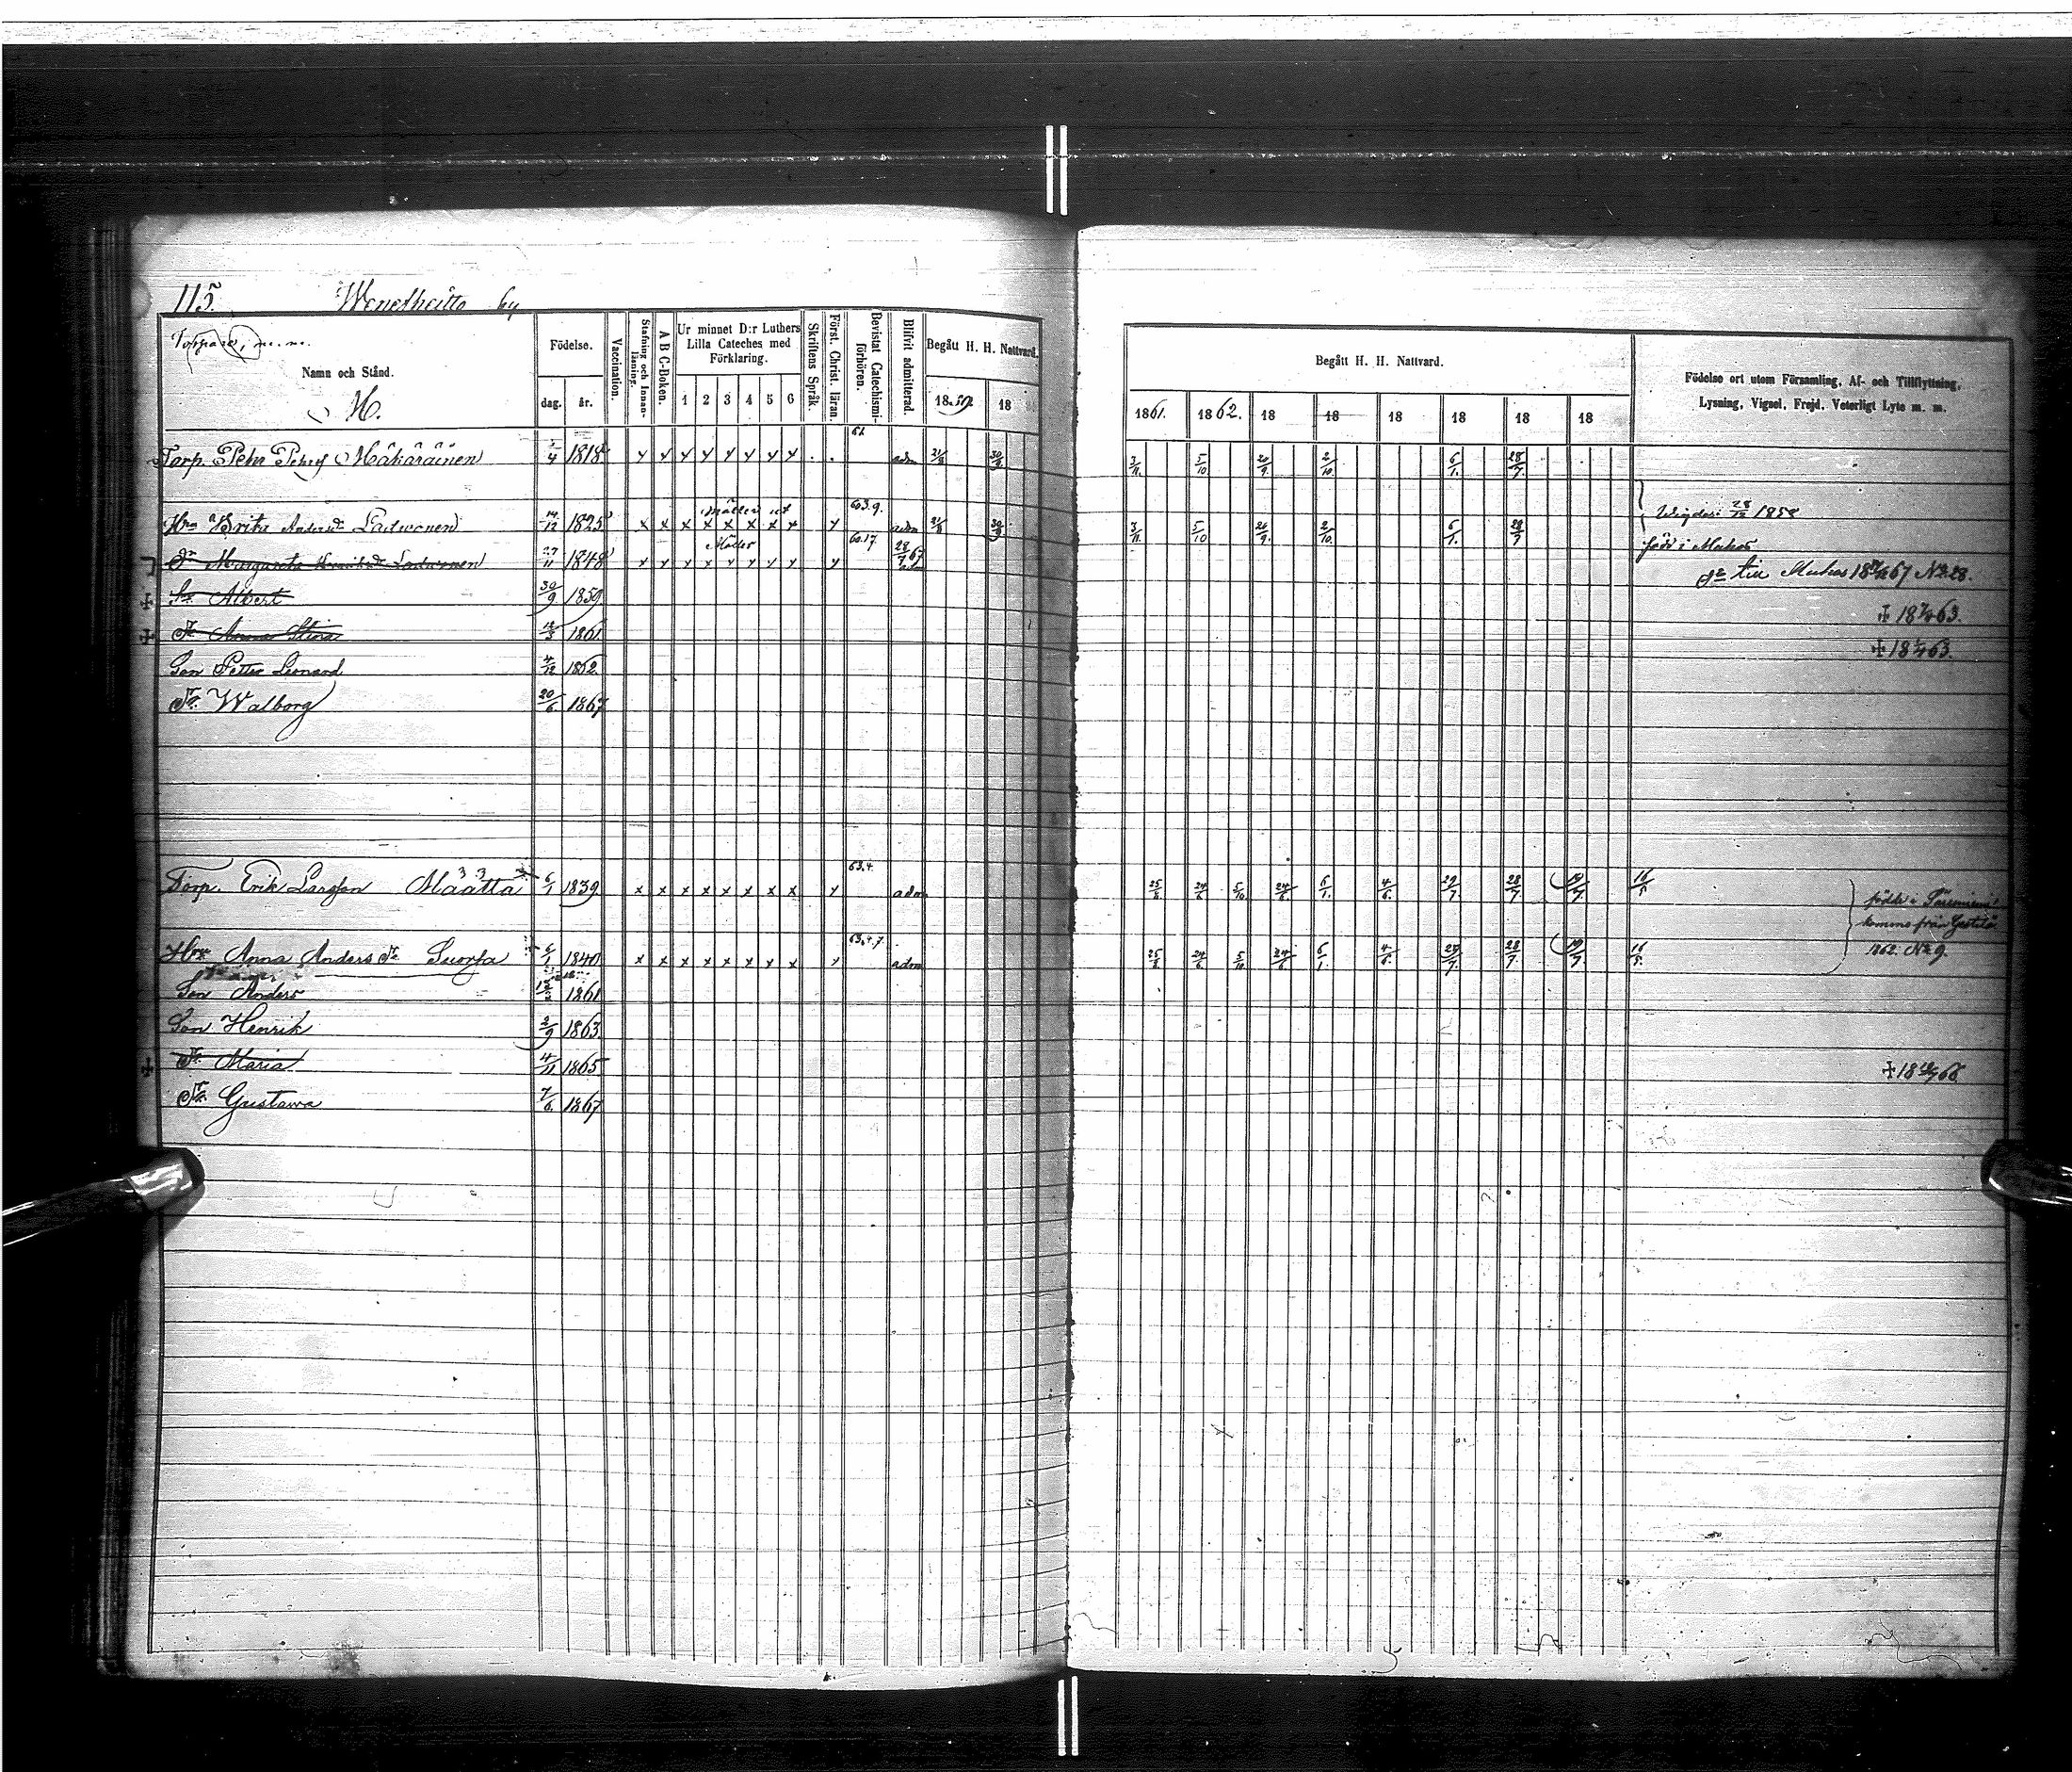 115. Wenetheitto by
Torpare, m. m.
Namn och Stånd.
M.
Födelse.
dag. år.
Vaccination.
Stafning och Innan-läsning.
A B C-Boken.
Ur minnet D:r Luthers
Lilla Cateches med
Förklaring.
1 2 3 4 5 6
Skriftens Språk.
Först. Christ. läran.
Bevistat Catechismi-förhören.
Blifvit admitterad.
Begått H. H. Nattvard.
1859. 18
Begått H. H. Nattvard.
1861. 1862. 18 18 18 18 18 18
Födelse ort utom Församling, Af- och Tillflyttning,
Lysning, Vigsel, Frejd, Veterligt Lyte m. m.
Torp. Pehr Pehrs Mäkäräinen /4 1818 x x x x x x x x . . 61 adm 3/11. 5/10 20/9. 2/10. 6/1. 28/7.
Hu Brita Anders dr 14/12 1825 x x x x x x x x x 60.3.9. adm 3/11. 5/10 20/9. 2/10. 6/1. 28/7 Wigde 28/12 1858
dr Margareta 27/11 1848 x x x x x x x x x 60.17. 28/7 67 adm född i Muhos
till Muhos 67 No 28.
Sn Albert 30/9 1859 ✠ 18 63.
dr Anna Stina 12/3 1861 ✠ 18 63.
Son Petter Leonard 4/12 1862.
dr Walborg 20/6 1867
Torp. Erik Larsson Määttä 6/1 1839 x x x x x x x x x 63.4. adm 25/6. 24/6 5/10 24/6. 6/1. 4/6. 29/7. 28/7. 19/7. 16/5 födde i
komne från
Hu Anna Anders dr Suorsa 6/1 1840 x x x x x x x x x 63.4.7. adm 25/6. 24/6 5/10 24/6 6/1. 4/6. 29/7. 28/7. 19/7. 16/5. 1862. No 9.
Son Anders 1861
Son Henrik 2/9 1863.
dr Maria 4/11 1865 ✠ 18 66
dr Gustava 7/6. 1867